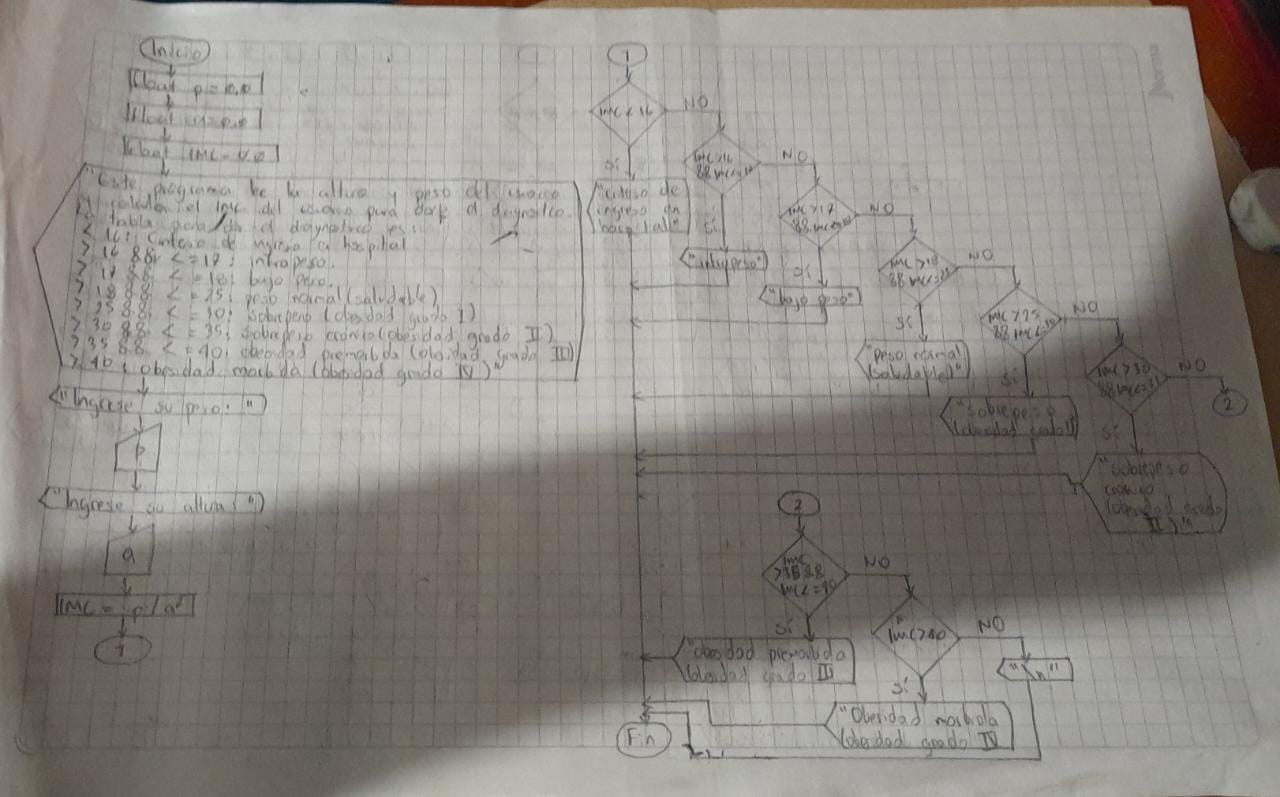 Inicio
float p=0.0
float a=0.0
float IMC=0.0
"Este programa lee la altura y peso del usuario
y calcula el IMC del usuario para darle el diagnostico.
tabla para dar el diagnostico es:
< 16: Criterio de ingreso a hospital
> 16 && <=17: infrapeso.
> 17 && <=18: bajo peso.
> 18 && <=25: peso normal (saludable)
> 25 && <=30: sobrepeso (obesidad grado I)
> 30 && <=35: sobrepeso cronico (obesidad grado II)
> 35 && <=40: obesidad premorbida (obesidad grado III)
> 40: obesidad morbida (obesidad grado IV)"
"Ingrese su peso: "
p
"Ingrese su altura: "
a
IMC = p/a²
1
1
IMC < 16
NO
Sí
"criterio de
ingreso en
hospital"
IMC>16
&&
NO
Sí
"infrapeso"
IMC>17
&&
NO
Sí
"bajo peso"
IMC>18
&& IMC<=25
NO
Sí
"peso normal
(saludable)"
IMC>25
&&
NO
Sí
"Sobrepeso
(obesidad grado I)"
IMC>30
&& IMC<=35
NO
2
Sí
"Sobrepeso
cronico
(obesidad grado
II)"
2
IMC
>35 &&
IMC<=40
NO
Sí
"obesidad premorbida
(obesidad grado III
IMC>40
NO
"\n"
Sí
"Obesidad morbida
(obesidad grado IV
Fin